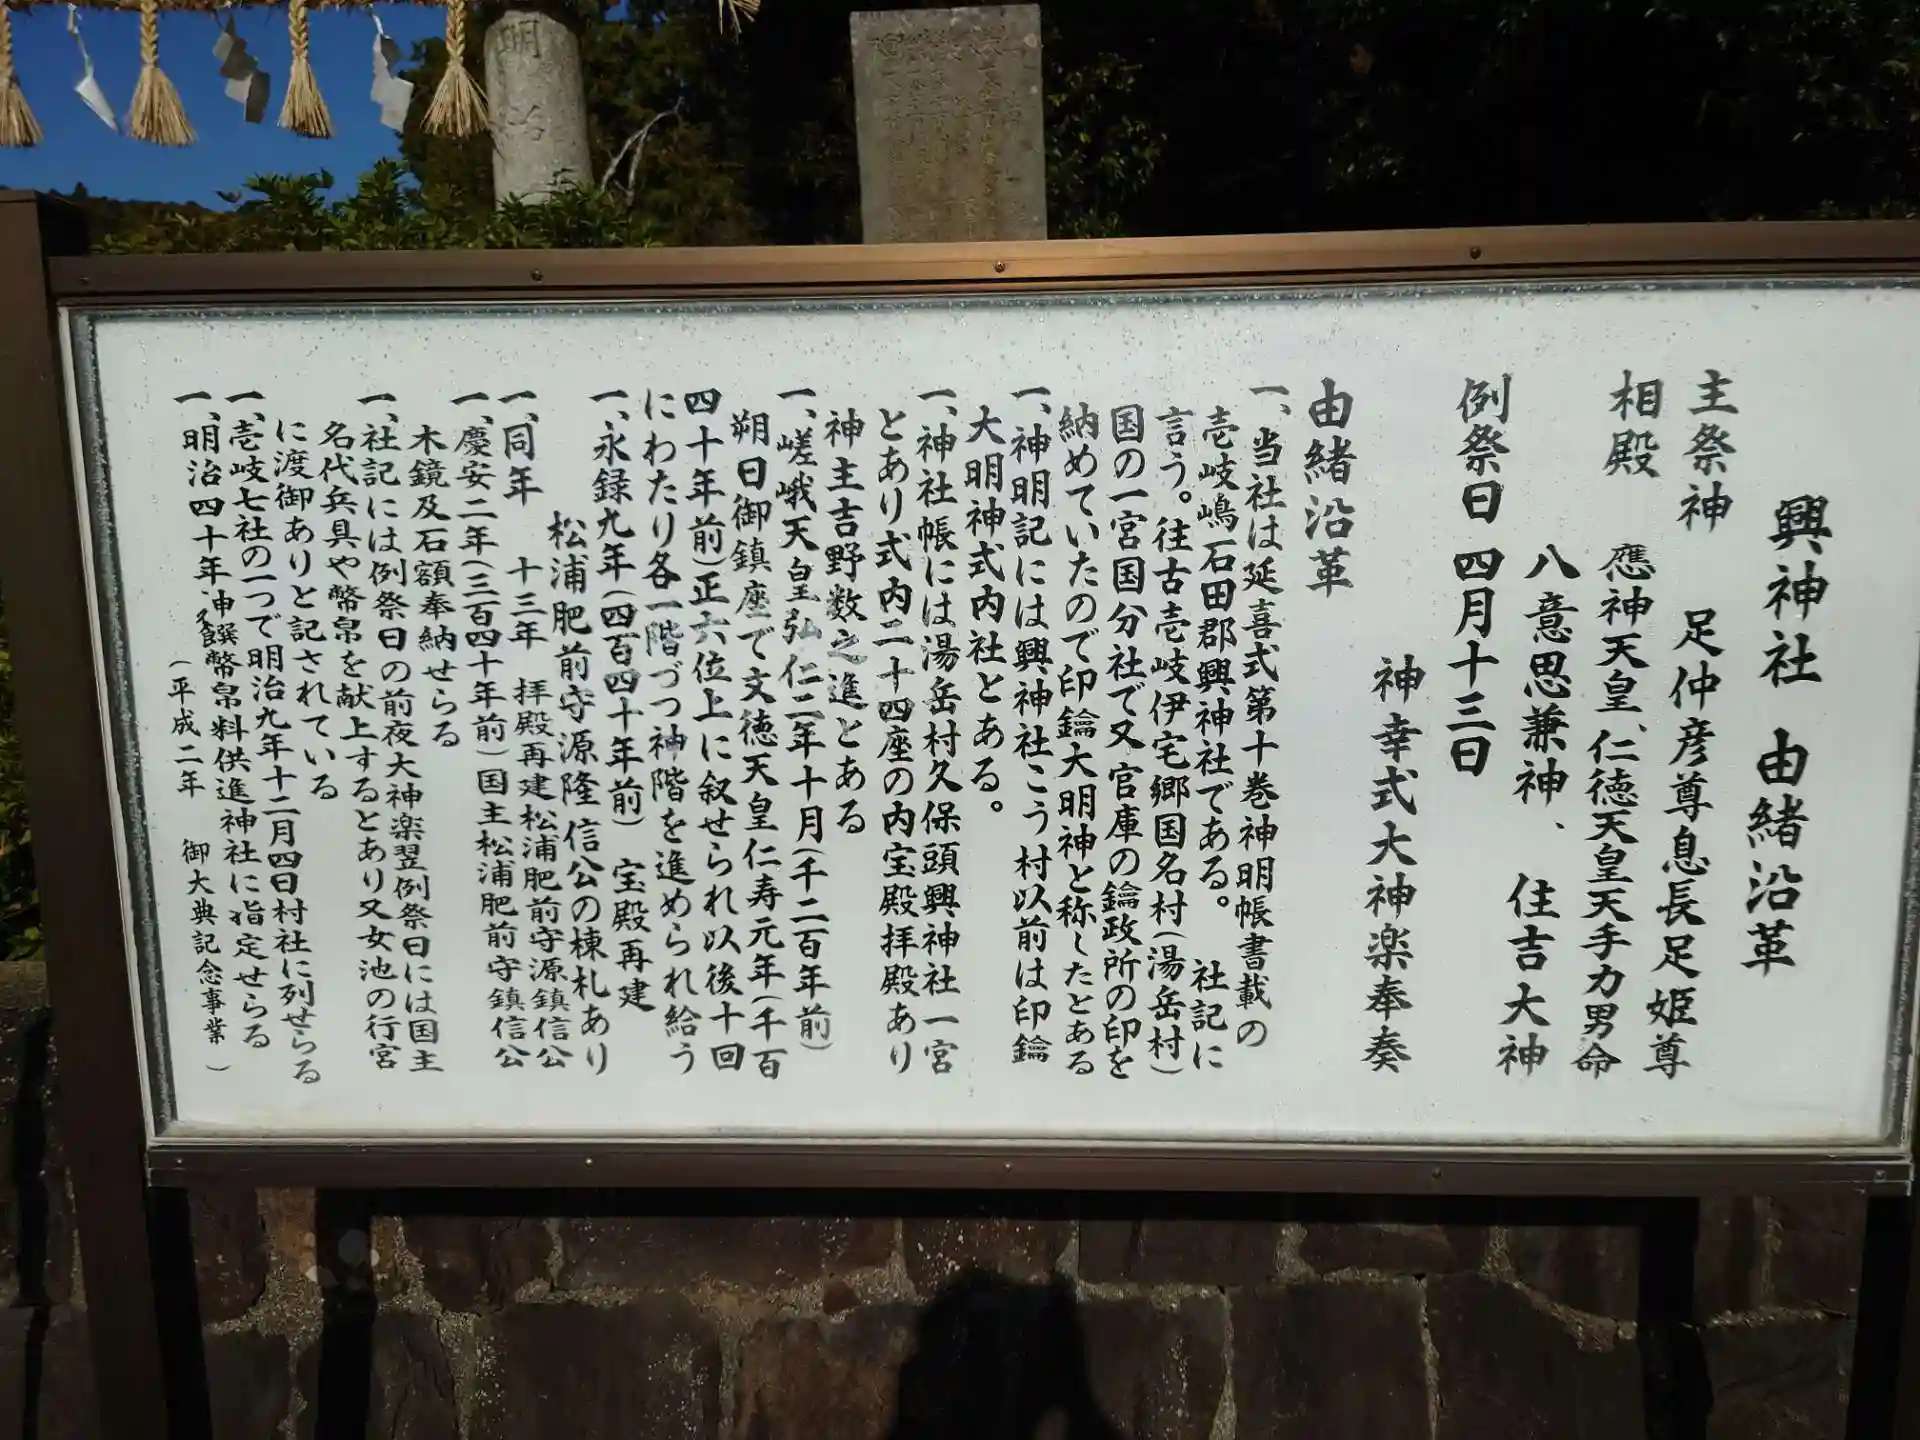 興神社 由緒沿革
主祭神 足仲彦尊息長足姫尊
相殿 應神天皇、仁徳天皇天手力男命
八意思兼神、住吉大神
例祭日 四月十三日
神幸式大神楽奉奏
由緒沿革
一、当社は延喜式第十巻神明帳書載の
壱岐嶋石田郡興神社である。社記に
言う。往古壱岐伊宅郷国名村(湯岳村)
国の一宮国分社で又官庫の鑰政所の印を
納めていたので印鑰大明神と称したとある
一、神明記には興神社こう村以前は印鑰
大明神式内社とある。
一、神社帳には湯岳村久保頭興神社一宮
とあり式内二十四座の内宝殿拝殿あり
神主吉野数之進とある
一、嵯峨天皇弘仁二年十月(千二百年前)
朔日御鎮座で文徳天皇仁寿元年(千百
四十年前)正六位上に叙せられ以後十回
にわたり各一階づつ神階を進められ給う
一、永録九年(四百四十年前) 宝殿再建
松浦肥前守源隆信公の棟札あり
一、同年 十三年 拝殿再建松浦肥前守源鎮信公
一、慶安二年(三百四十年前)国主松浦肥前守鎮信公
木鏡及石額奉納せらる
一、社記には例祭日の前夜大神楽翌例祭日には国主
名代兵具や幣帛を献上するとあり又女池の行宮
に渡御ありと記されている
一、壱岐七社の一つで明治九年十二月四日村社に列せらる
一、明治四十年、神饌幣帛料供進神社に指定せらる
(平成二年 御大典記念事業)
明治